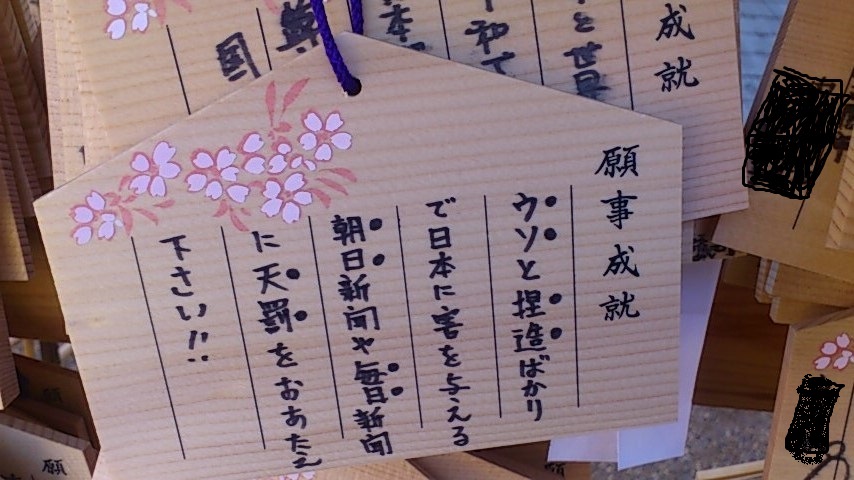 願事成就
ウソと捏造ばかり
で日本に害を与える
朝日新聞や毎日新聞
に天罰をおあたえ
下さい!!
成就
と世界
和で
本
国
願